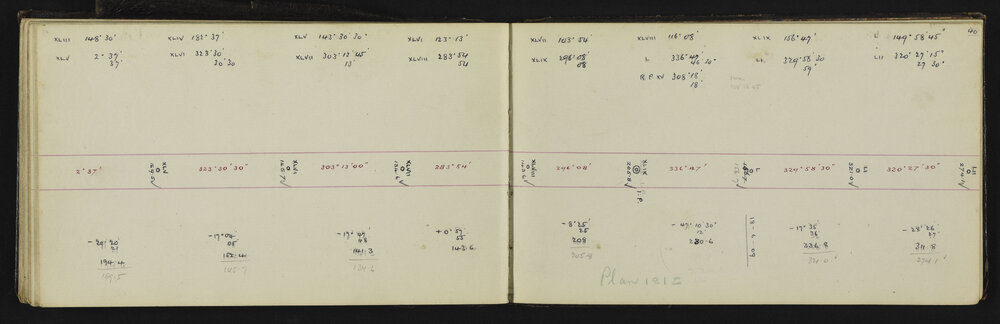 XLIII 148° 30' XLIV 182° 37' XLV 143° 30' 30" XLVI 123° 13'
XLV 2° 37' XLVI 323° 30' XLVII 303° 12' 45" XLVIII 283° 54
37' 30' 30 13' 54
2° 37' XLV 323° 30' 30" XLVI 303° 13' 00" XLVII 283° 54'
- 20° 20' - 17° 04' - 17° 49' + 0° 57'
21 05 48 55
194.4 152.4 141.3 143.6
145.7 134.6
40
XLVII 103° 54' XLVIII 116° 08 XLIX 156° 47' L 149° 58' 45"
XLIX 296° 08' L 336° 47 LI 324° 58' 30 LII 320° 27' 15"
08 46' 30" 59' 27 30"
R.P. XV 308° 18'
18'
XLVIII 296° 08' XLIX 336° 47' L 324° 58' 30" LI 320° 27' 30" LII
- 8° 25' - 47° 10' 30" 18 - 6 - 09 - 17° 35' - 28° 26
25 12' 36 27
208 230.6 326.8 311.8
205.8 321.0 274.1
Plan 1912